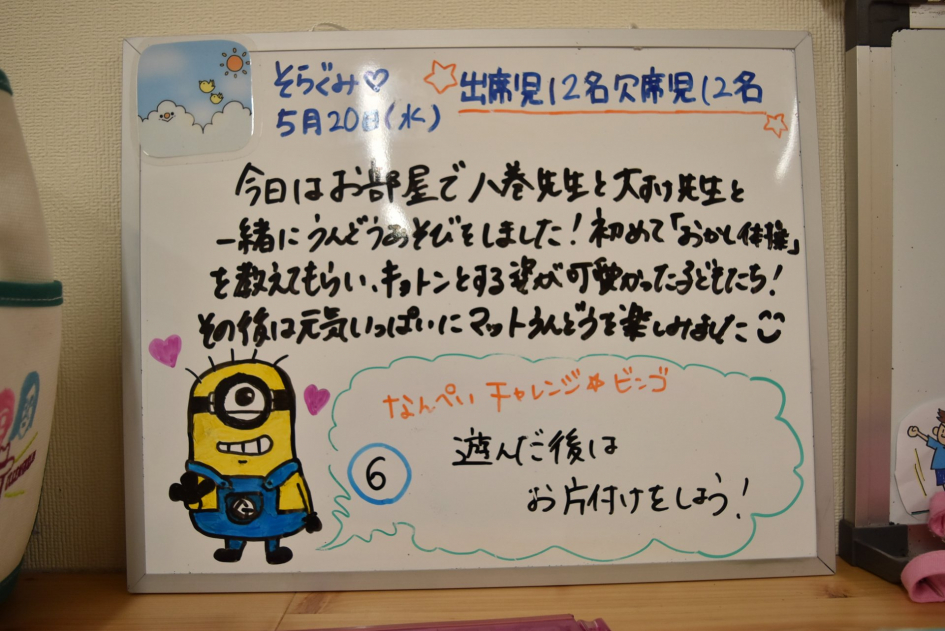 そらぐみ♡
5月20日(水)
☆出席児12名欠席児12名☆
今日はお部屋で八巻先生と大すけ先生と
一緒にうんどうあそびをしました！初めて「おかし体操」
を教えてもらい、キョトンとする姿が可愛かった子どもたち！
その後は元気いっぱいにマットうんどうを楽しみました
なんぺい チャレンジ☆ビンゴ
6
遊んだ後は
お片付けをしよう！